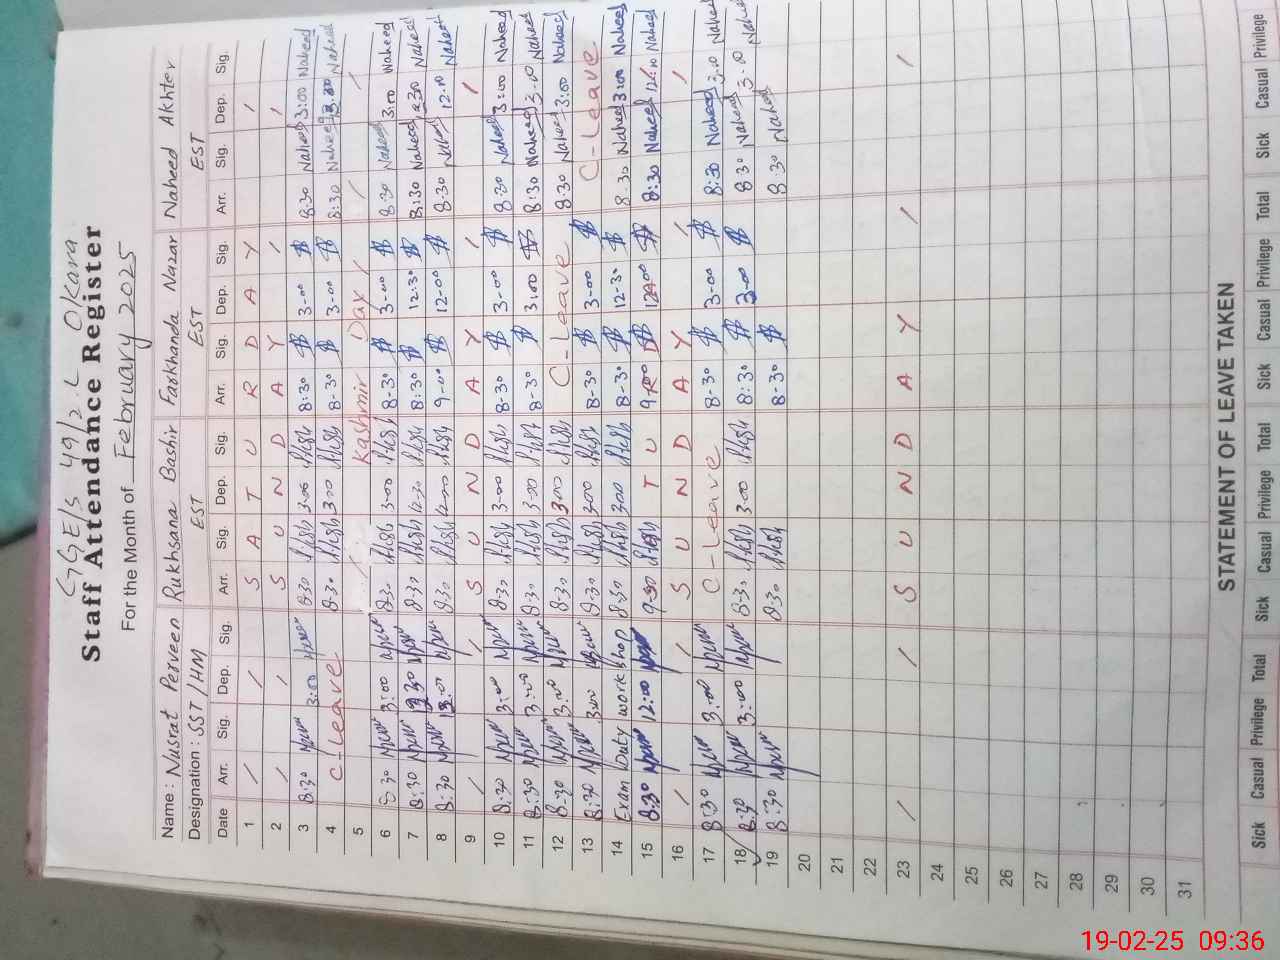 GGE/S 49/2.L Okara
Staff Attendance Register
For the Month of February 2025
Name: Nusrat Perveen Rukhsana Bashir Farkhanda Nazar Naheed Akhter
Designation: SST/HM EST EST EST
Date Arr. Sig. Dep. Sig. Arr. Sig. Dep. Sig. Arr. Sig. Dep. Sig. Arr. Sig. Dep. Sig.
1 / / S A T U R D A Y /
2 / / S U N D A Y / /
3 8:30 3:00 8:30 3:00 8:30 3-00 8:30 Naheed 3:00 Naheed
4 C-Leave 8:30 3:00 8-30 3-00 8:30 Naheed Naheed
5 / Kashmir Day / / /
6 8:30 3:00 8:30 3-00 8-30 3-00 8:30 Naheed 3:00 Naheed
7 8:30 12:30 8:30 12-30 8:30 12:30 8:30 Naheed 12:30 Naheed
8 8:30 8:30 12-00 9-00 12-00 8:30 Naheed 12:00 Naheed
9 / / S U N D A Y / /
10 8:30 3:00 8:30 3-00 8-30 3-00 8:30 Naheed 3:00 Naheed
11 8:30 3:00 8:30 3:00 8-30 3:00 8:30 Naheed 3:00 Naheed
12 8-30 3:00 8:30 3:00 C-Leave 8:30 Naheed 3:00 Naheed
13 8:30 3:00 8:30 3:00 8-30 3-00 C-Leave
14 Exam Duty work shop 8:30 3:00 8-30 12-30 8-30 Naheed 3:00 Naheed
15 8:30 12:00 T U 8:30 Naheed 12:00 Naheed
16 / / S U N D A Y / /
17 8:30 3:00 C-Leave 8-30 3-00 8:30 Naheed 3:00 Naheed
18 8:30 3:00 8:30 3:00 8:30 3-00 8:30 Naheed 3:00 Naheed
19 8:30 8:30 8:30 8:30 Naheed
20
21
22
23 / / S U N D A Y / /
24
25
26
27
28
29
30
31
STATEMENT OF LEAVE TAKEN
Sick Casual Privilege Total Sick Casual Privilege Total Sick Casual Privilege Total Sick Casual Privilege
19-02-25 09:36